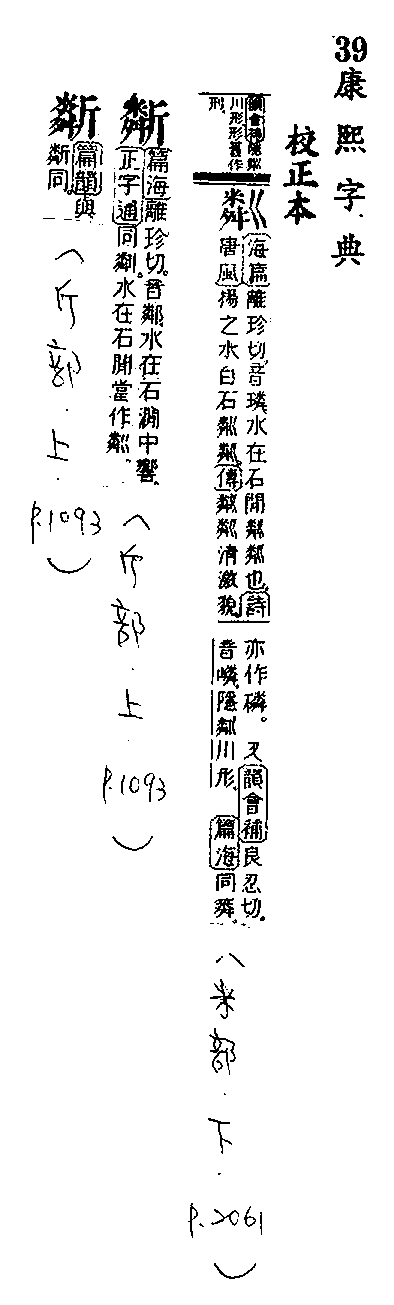 39康熙字典
校正本
韻會補隱粼
川形形舊作
形。
粼
海篇離珍切音璘水在石間粼粼也詩
唐風揚之水白石粼粼傳粼粼清激貌
亦作磷。又韻會補良忍切。
音嶙隱粼川形。篇海同粦。
(米部.下.
P.2061)
篇海離珍切。音粼水在石澗中響。
正字通同粼。水在石間當作粼。
(斤部.上.
P.1093)
篇韻與
同
(斤部.上.
P.1093)